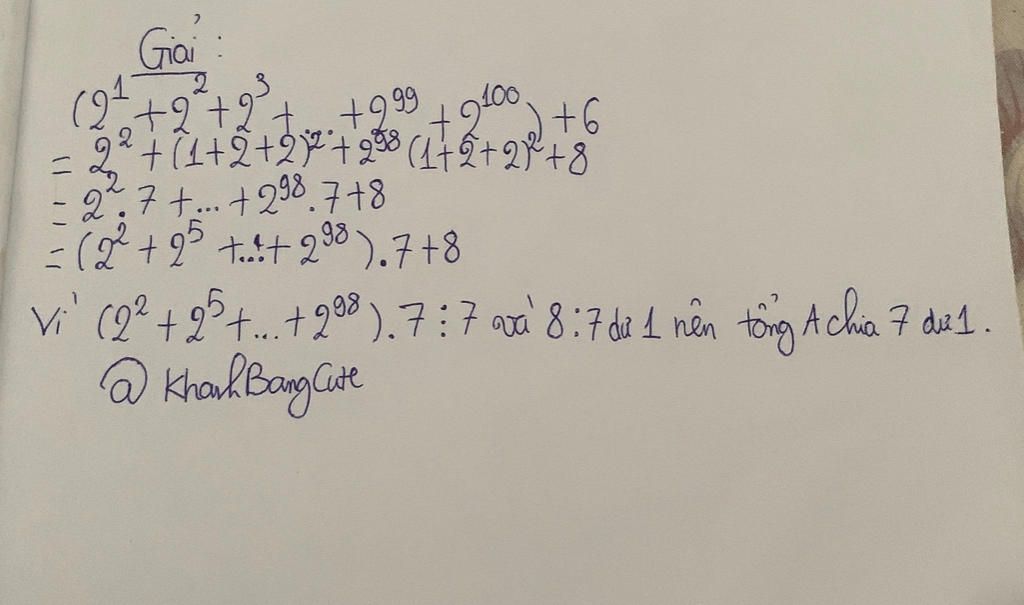 Giải :
(2¹ + 2² + 2³ + ... + 2⁹⁹ + 2¹⁰⁰) + 6
= 2² + (1+2+2)² + ... + 2⁹⁸ (1+2+2)² + 8
= 2² . 7 + ... + 2⁹⁸ . 7 + 8
= (2² + 2⁵ + ... + 2⁹⁸) . 7 + 8
Vì (2² + 2⁵ + ... + 2⁹⁸) . 7 ⋮ 7 và 8 : 7 dư 1 nên tổng A chia 7 dư 1 .
@ KhanhBangCute